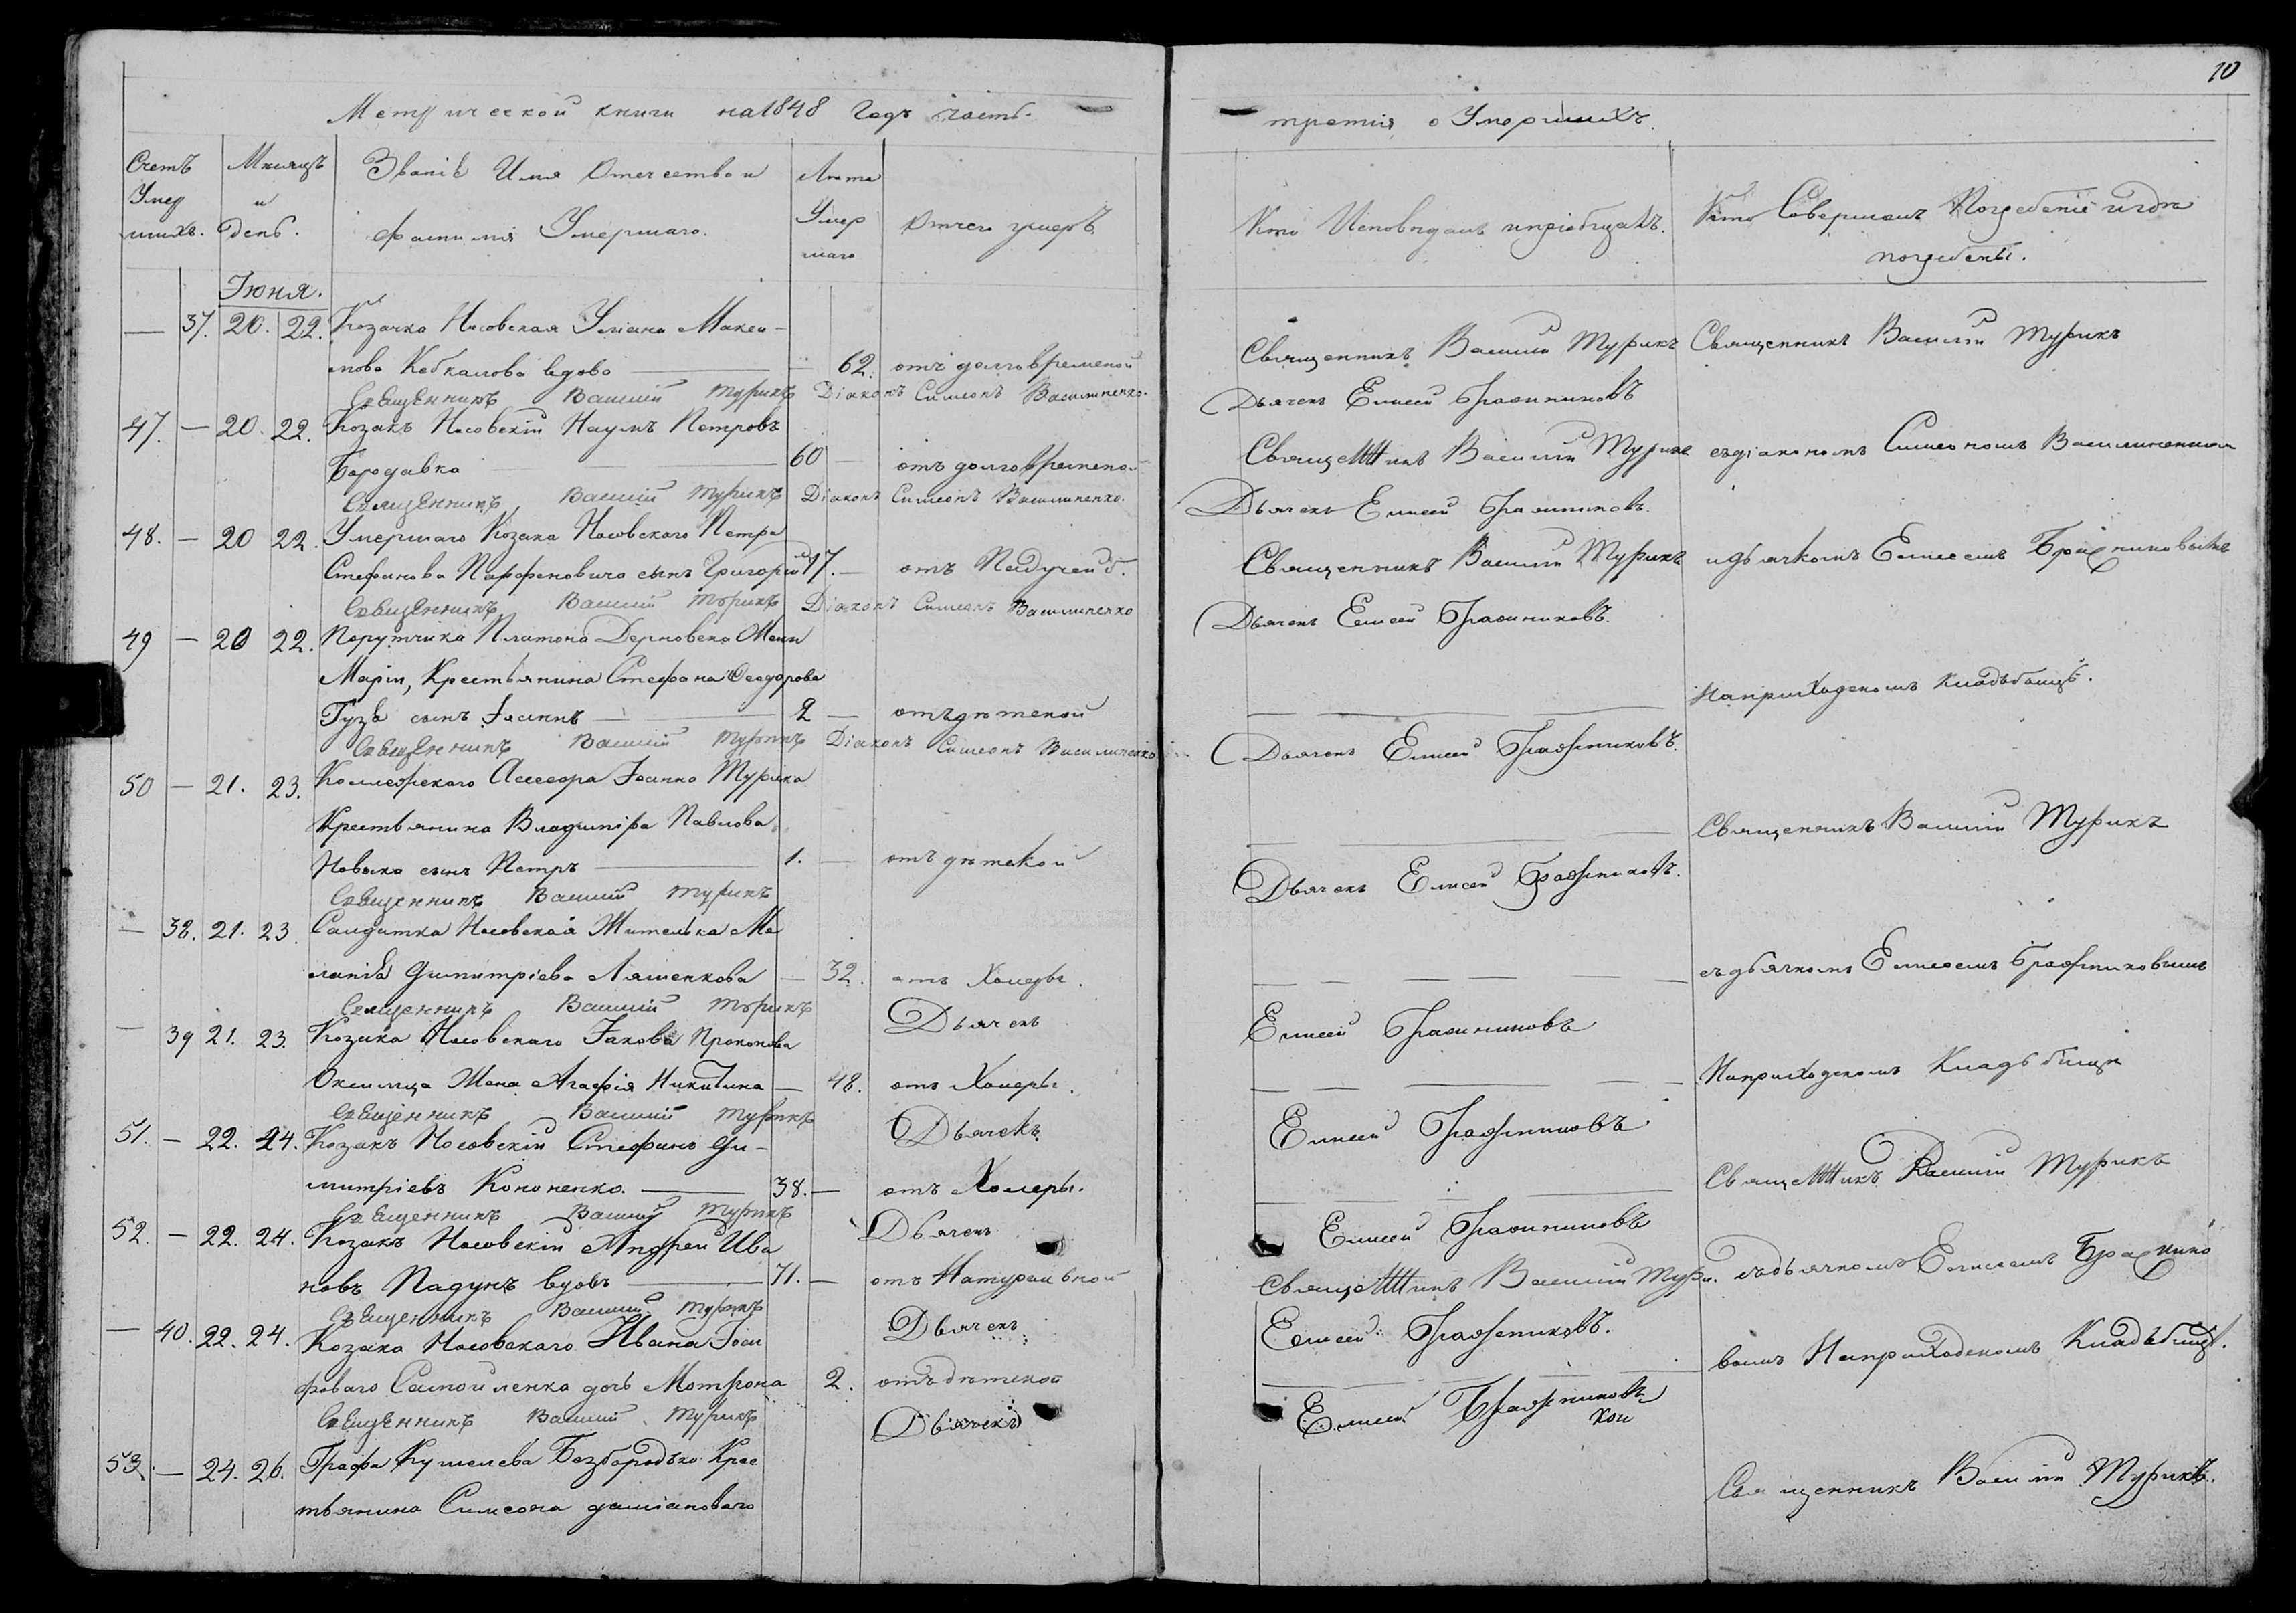 10
Метрической книги на 1848 годъ часть
третия о Умершихъ.
Счетъ Умерших.
Мѣсяцъ и день.
Званіе Имя Отечество и фамилія Умершаго.
Лѣта Умершаго
Отчего умеръ
Кто Исповѣдалъ и пріобщалъ.
Кто Совершалъ Погребеніе и гдѣ погребены.
Іюня.
— 37. 20. 22. Козачка Носовская Уліана Макси-
мова вдова — 62. отъ долговременой
Священникъ Василій Турикъ Священникъ Василій Турикъ
Священникъ Василій Турикъ Діаконъ Симеонъ Василиненко.
Дьячекъ Елисей Бражниковъ
47. — 20. 22. Козакъ Носовскій Наумъ Петровъ
Бородавка 60 — отъ долговременой
Священникъ Василій Турикъ съ діакономъ Симеономъ
Священникъ Василій Турикъ Діаконъ Симеонъ Василиненко.
Дьячекъ Елисей Бражниковъ.
48. — 20 22. Умершаго Козака Носовского Петра
Стефанова Парфеновича сынъ Григорій 17. — отъ Падучей б.
Священникъ Василій Турикъ и дьячкомъ Елисеемъ Бражниковымъ
Священникъ Василій Турикъ Діаконъ Симеонъ Василиненко
Дьячекъ Елисей Бражниковъ.
49 — 20 22. Порутчика Платона
Маріи, Крестьянина Стефана Феодорова
Гузя сынъ Іоаннъ — 2 — отъ дѣтской
На приходскомъ кладбищѣ.
Священникъ Василій Турикъ Діаконъ Симеонъ Василиненко
Дьячекъ Елисей Бражниковъ.
50 — 21. 23. Коллежскаго Асесора Іоанна Турика
Крестьянина Владиміра Павлова
Новика сынъ Петръ — 1. — отъ дѣтской
Священникъ Василій Турикъ
Священникъ Василій Турикъ
Дьячекъ Елисей Бражниковъ.
— 38. 21. 23. Салдатка Носовская Жителька Ме
ланія Димитріева Ляшенкова — 32. отъ Холеры.
съ дьячкомъ Елисеемъ Бражниковымъ
Священникъ Василій Турикъ Дьячекъ Елисей Бражниковъ
— 39 21. 23. Козака Носовскаго Іакова Прокопова
Жена Агафія Никитина — 48. отъ Холеры.
На приходскомъ Кладбищѣ
Священникъ Василій Турикъ Дьячекъ Елисей Бражниковъ
51. — 22. 24. Козакъ Носовскій Стефанъ Ди-
митріевъ Кононенко. — 38. — отъ Холеры.
Священникъ Василій Турикъ
Священникъ Василій Турикъ Дьячекъ Елисей Бражниковъ
52. — 22. 24. Козакъ Носовскій Андрей Ива
новъ Падунъ вдовъ — 71. — отъ Натуральной
Священникъ Василій Тури. съ дьячкомъ Елисеемъ Бражнико
Священникъ Василій Турикъ Дьячекъ Елисей Бражниковъ.
— 40. 22. 24. Козака Носовскаго Ивана Іоси
фоваго Самойленка дочь Мотрона 2. отъ дѣтской
вымъ На приходскомъ Кладбищѣ.
Священникъ Василій Турикъ Дьячекъ Елисей Бражниковъ
53. — 24. 26. Графа Кушелева Безбородько Крес
тьянина Симеона даміановаго
Священникъ Василій Турикъ.